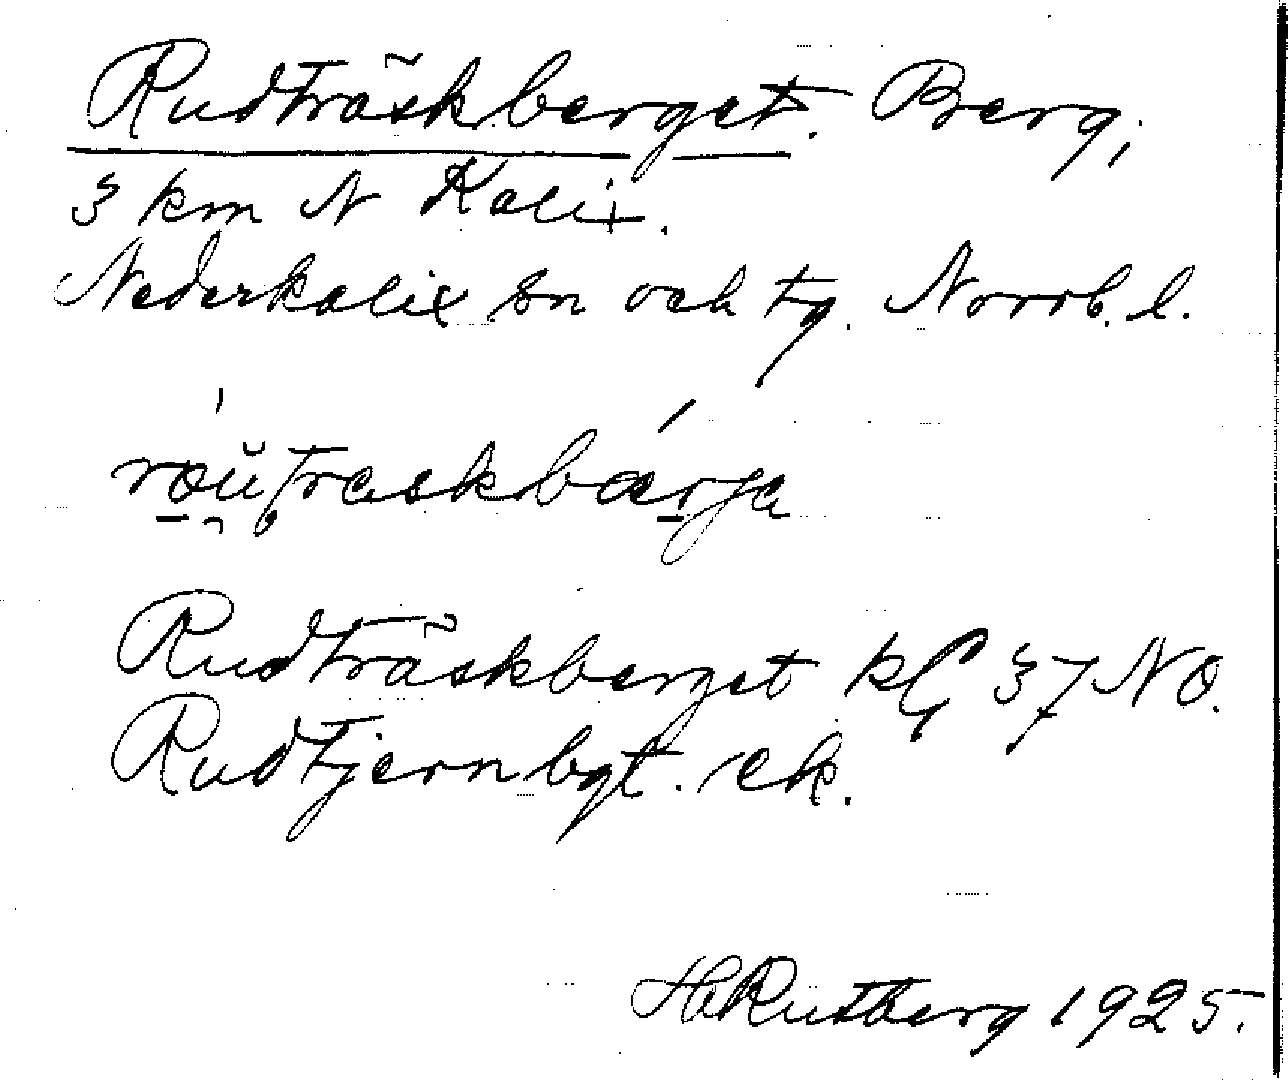 Rudträskberget. Berg,
3 km N Kalix.
Nederkalix sn och tg. Norrb. l.
Rudträskberget kG 37 NO.
Rudtjernbgt. ek.
HRutberg 1925.